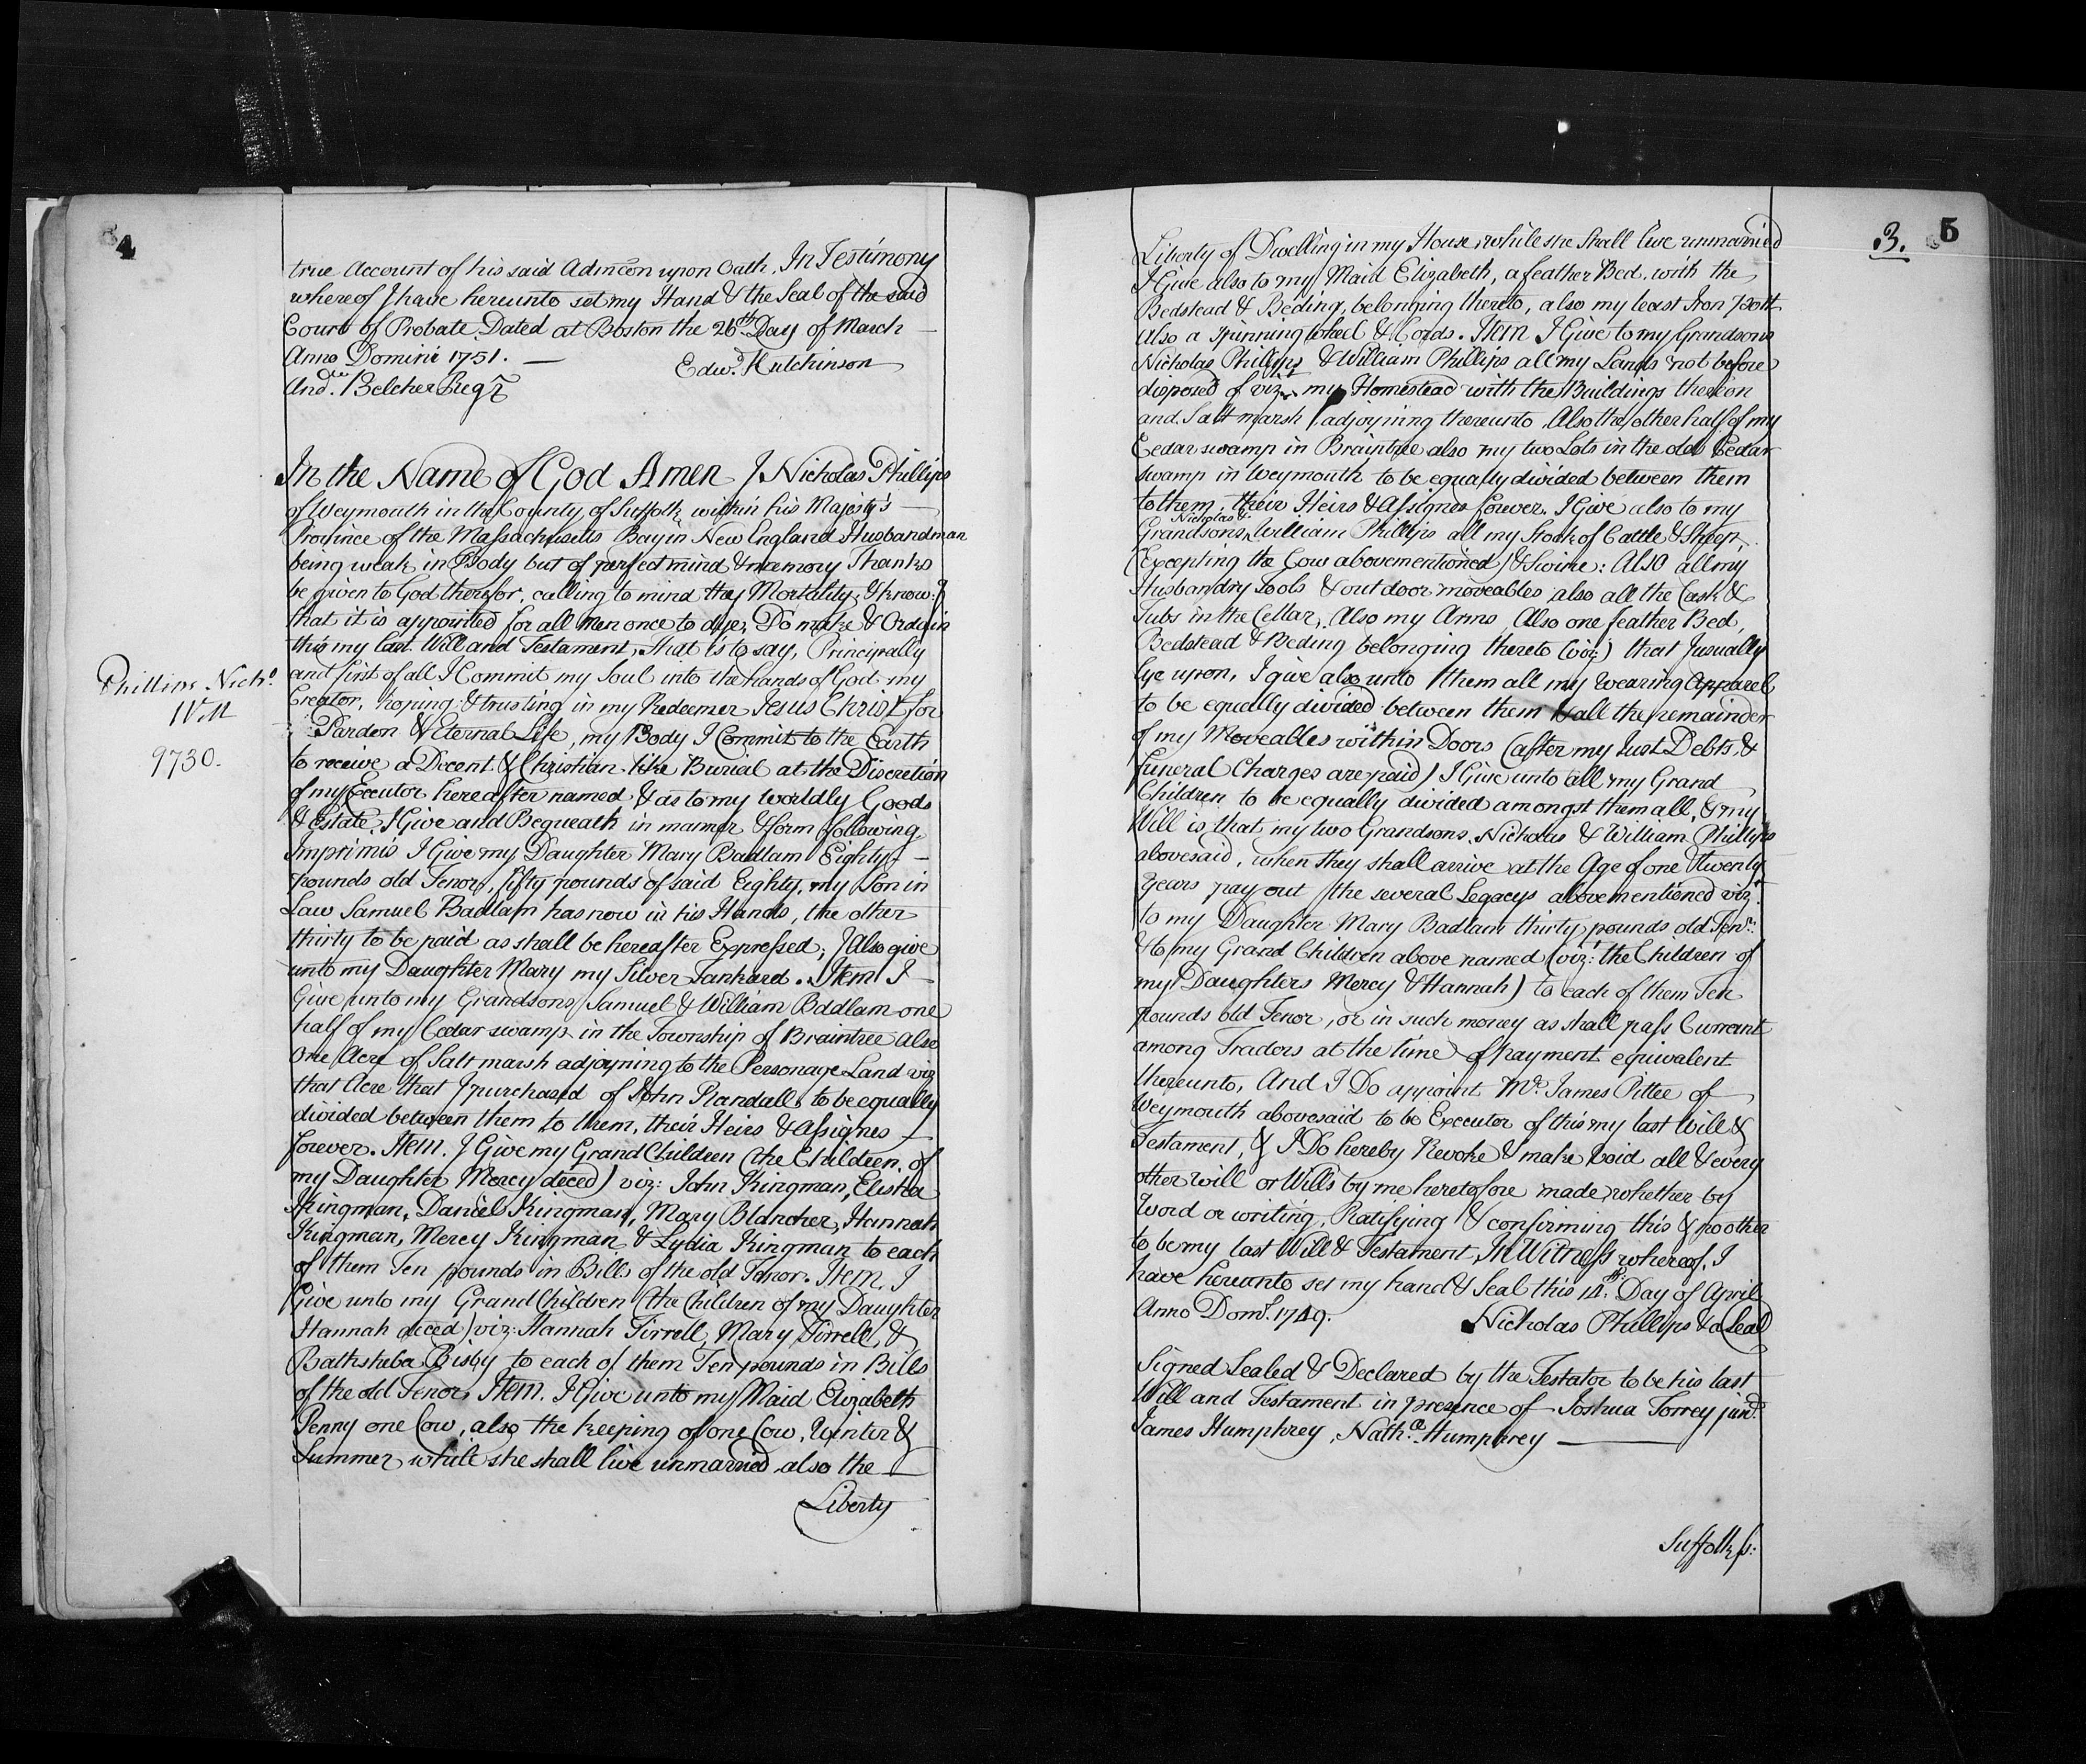 4
true Account of his said Admcon upon Oath, In Testimony
whereof I have hereunto set my Hand & the Seal of the said
Court of Probate Dated at Boston the 26th Day of March
Anno Domini 1751. Edwd. Hutchinson
Andw. Belcher Regr
In the Name of God Amen I Nicholas Phillips
of Weymouth in the County of Suffolk within his Majesty's
Province of the Massachusetts Bay in New England Husbandman
being weak in Body but of perfect mind & memory Thanks
be given to God therefor, calling to mind the Mortality, & know:g
that it is appointed for all Men once to dye, Do make & Ordain
this my last Will and Testament, That is to say, Principally
and first of all I Commit my Soul into the hands of God my
Creator, hoping & trusting in my Redeemer Jesus Christ for
Pardon & Eternal Life, my Body I Commit to the Earth
to receive a Decent & Christian like Burial at the Discretion
of my Excutor hereafter named & as to my Worldly Goods
& Estate I Give and Bequeath in manner & form following
Imprimis I Give my Daughter Mary Badlam Eighty
pounds old Tenor, fifty pounds of said Eighty, my Son in
Law Samuel Badlam has now in his Hands, the other
thirty to be paid as shall be hereafter Expressed; I Also give
unto my Daughter Mary my Silver Tankard. Item I
Give unto my Grandsons Samuel & William Badlam one
half of my Cedar swamp in the Township of Braintree also
One Acre of Salt marsh adjoyning to the Personage Land viz
that Acre that I purchased of John Randall to be equally
divided between them to them, their Heirs & Assignes
forever. Item. I Give my Grand Children (the Children of
my Daughter Mercy deced) viz: John Kingman, Elisha
Kingman, Daniel Kingman, Mary Blancher, Hannah
Kingman, Mercy Kingman & Lydia Kingman to each
of them Ten pounds in Bills of the old Tenor. Item. I
Give unto my Grand Children (the Children of my Daughter
Hannah deced) viz: Hannah Tirrell, Mary Tirrell, &
Bathsheba Bisby to each of them Ten pounds in Bills
of the old Tenor, Item. I Give unto my Maid Elizabeth
Penny one Cow, also the keeping of one Cow, Winter &
Summer while she shall live unmarried also the
Liberty
Phillips Nichs.
Will
9730.
.3. 5
Liberty of Dwelling in my House, while she shall live unmarried
I Give also to my Maid Elizabeth, a feather Bed, with the
Bedstead & Beding, belonging thereto, also my least Iron Pott
also a spinning wheel & Cords. Item I Give to my Grandsons
Nicholas Phillips & William Phillips all my Lands not before
disposed of vizt. my Homestead with the Buildings thereon
and Salt marsh adjoyning thereunto, Also the other half of my
Cedar swamp in Braintree also my two Lots in the old Cedar
swamp in Weymouth to be equally divided between them
to them, their Heirs & Assignes forever. I Give also to my
Nicholas &
Grandsons William Phillips all my Stock of Cattle & Sheep,
(Excepting the Cow abovementioned) & Swine: Also all my
Husbandry Tools & out door moveables also all the Cask &
Tubs in the Cellar. Also my Arms, Also one feather Bed,
Bedstead & Beding belonging thereto (viz) that I usually
lye upon, I give also unto them all my Wearing Apparel
to be equally divided between them & all the remainder
of my Moveables within Doors (after my Just Debts &
funeral Charges are paid) I Give unto all my Grand
Children to be equally divided amongst them all, & my
Will is that my two Grandsons Nicholas & William Phillips
abovesaid, when they shall arrive at the Age of one & twenty
years pay out the several Legacys abovementioned vizt.
to my Daughter Mary Badlam thirty pounds old Tenr.
& to my Grand Children above named (viz: the Children of
my Daughters Mercy & Hannah) to each of them Ten
pounds old Tenor, or in such money as shall pass Currant
among Traders at the time of payment equivalent
thereunto, And I Do appoint Mr. James Pittee of
Weymouth abovesaid to be Executor of this my last Will &
Testament, & I Do hereby Revoke & make void all & every
other will or Wills by me heretofore made, whether by
Word or writing, Ratifying & confirming this & no other
to be my last Will & Testament, In Witness whereof, I
have hereunto set my hand & Seal this 14th. Day of April
Anno Domi. 1749. Nicholas Phillips & a Seal
Signed Sealed & Declared by the Testator to be his last
Will and Testament in presence of Joshua Torrey junr.
James Humphrey, Nathll. Humphrey
Suffolk ss: